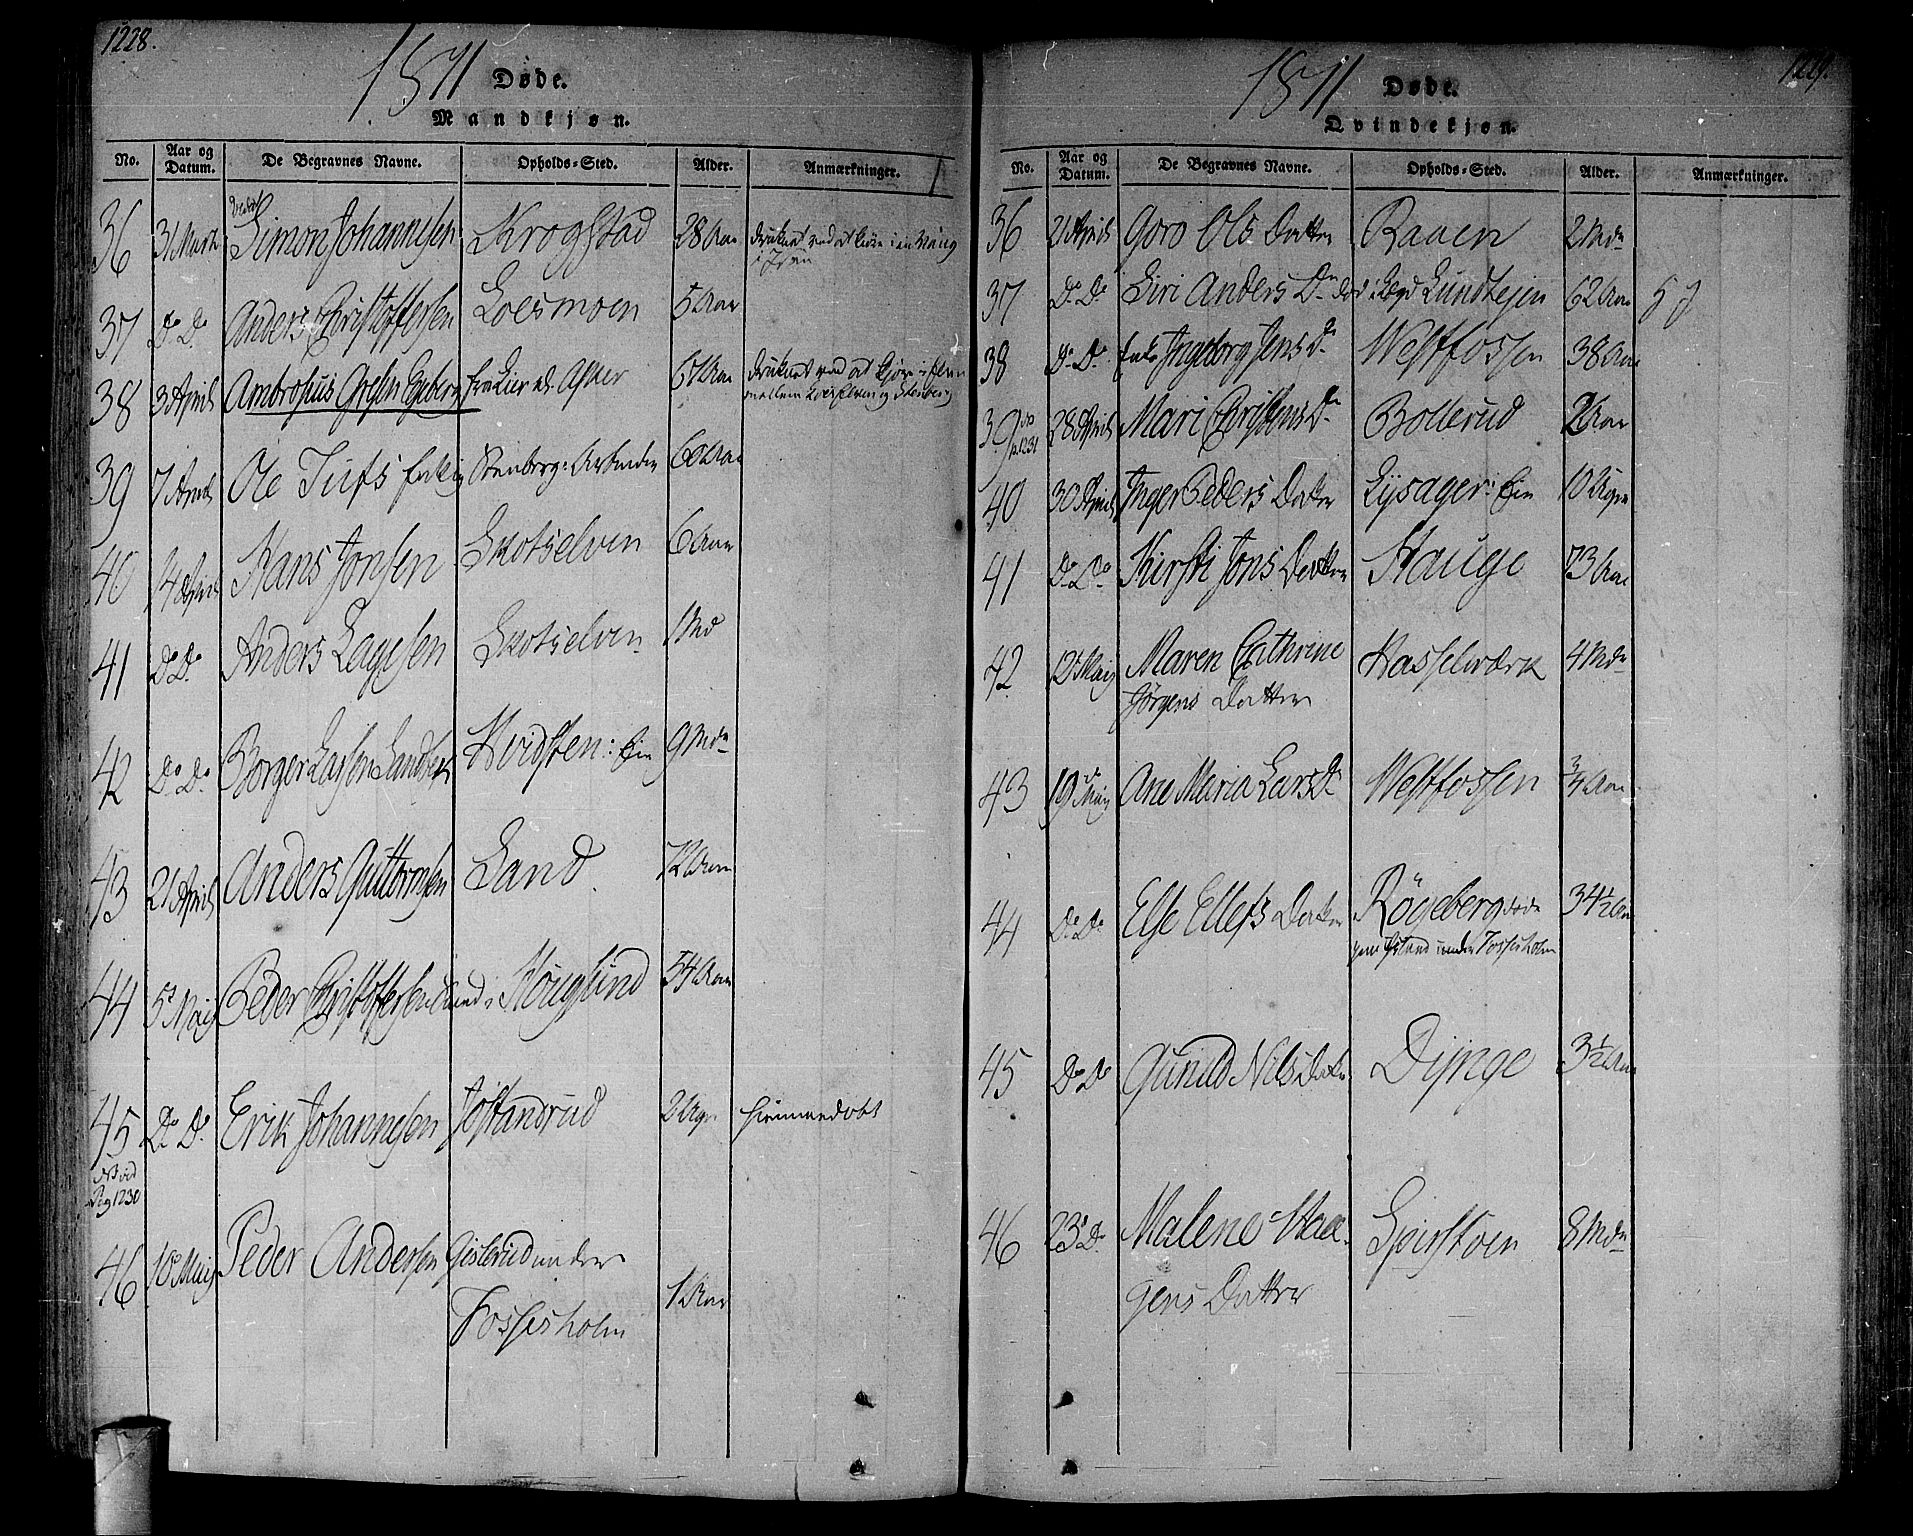 1228.
1811 Døde.
Mandkjøn.
No. Aar og Datum. De Begravnes Navne. Opholds=Sted. Alder. Anmærkninger.
36 31 Marti Simon Johannesen Krogstad 28 Aar druknet ved at
37 Do Do Anders Christoffersen Loesmoen 5 Aar
38 3 April Ambrosius fra Lier Asker 67 Aar druknet ved at kjøre
mellem Loeselven og Stenberg
39 7 April Ole Tufs Stenberg 60 Aar
40 14 April Hans Jonsen Skotselven 6 Aar
41 Do Do Anders Lagesen Skotselven 1 Md
42 Do Do Borger Larsen Hvidsten: Eier 9 Mdr
43 21 April Anders Guttormsen Land. 72 Aar
44 5 Maij Peder Christoffersen Houglund 54 Aar
45 Do Do Erik Johannesen Jostandrud 2 Uger hiemmedøbt
NB vid
Pag 1230
46 10 Maij Peder Andersen Gislerud under
Fossesholm 1 Aar
1229.
1811 Døde.
Qvindekjøn.
No. Aar og Datum. De Begravnes Navne. Opholds=Sted. Alder. Anmærkninger.
36 21 April Goro Ols Datter Raaen 2 Mdr
37 Do Do Siri Anders Dr Lundtejen 62 Aar
38 Do Do Ingeborg Jens Dr Westfossen 38 Aar
39 28 April Mari Christens Dr Bollerud 2 Aar
p. 1231
40 30 April Inger Peders Datter Lysager: Eie 10 Uger
41 Do Do Kirsti Jons Datter Hauge 73 Aar
42 12 Maij Maren Cathrine Hasselværk 4 Mdr
Jørgens Datter
43 19 Maij Ane Maria Lars Dr Westfossen 3/4 Aar
44 Do Do Else Ellefs Datter Røgeberg 34 1/2 Aar
under Fossesholm
45 Do Do Gunild Nils Datter Dynge 3 1/2 Aar
46 23 Do Malene Haa-
gens Datter Speirstoen 8 Mdr